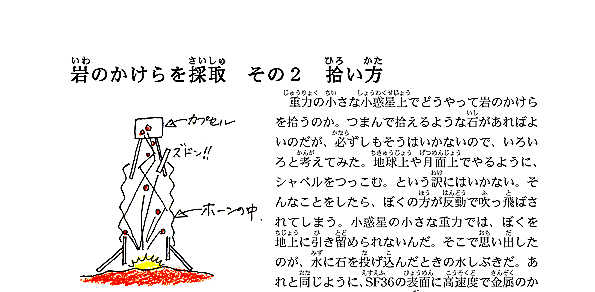 岩のかけらを採取 その2 拾い方
カプセル
ズドン!!
ホーンの中
重力の小さな小惑星上でどうやって岩のかけら
を拾うのか。つまんで拾えるような石があればよ
いのだが、必ずしもそうはいかないので、いろい
ろと考えてみた。地球上や月面上でやるように、
シャベルをつっこむ。という訳にはいかない。そ
んなことをしたら、ぼくの方が反動で吹っ飛ばさ
れてしまう。小惑星の小さな重力では、ぼくを
地上に引き留められないんだ。そこで思い出した
のが、水に石を投げ込んだときの水しぶきだ。あ
れと同じように、SF36の表面に高速度で金属のか